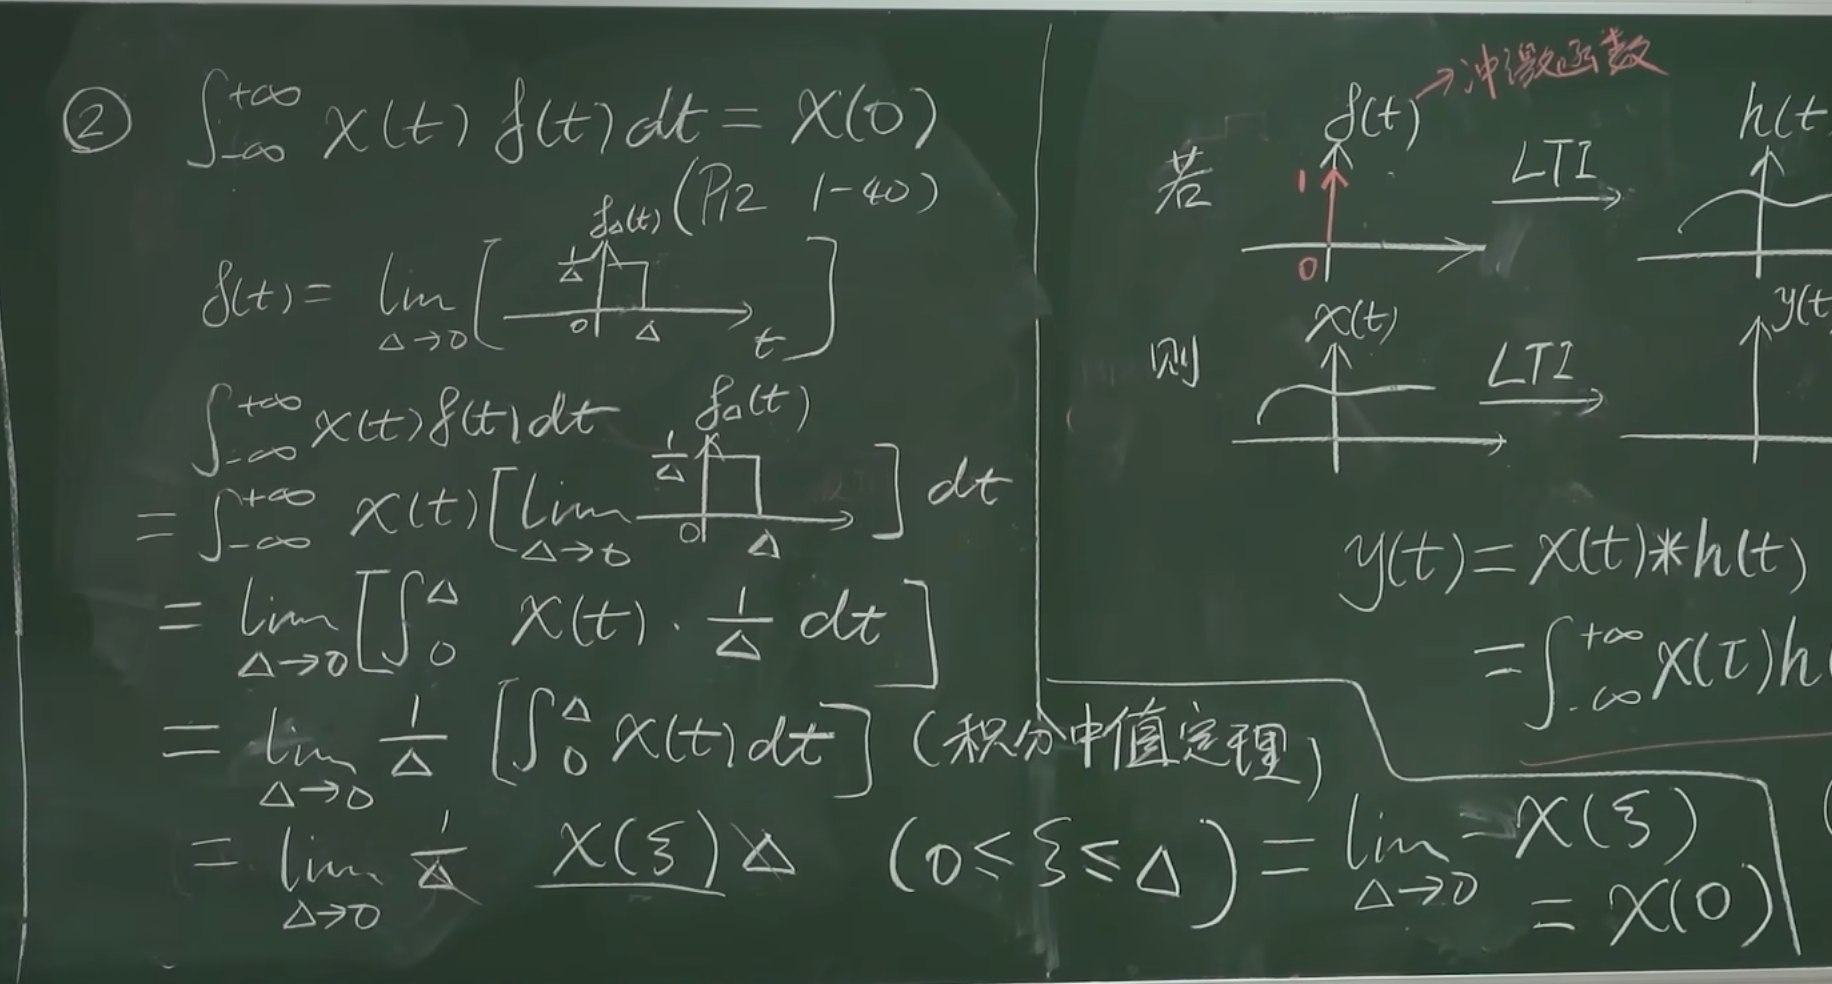 ② ∫_{-∞}^{+∞} x(t) δ(t) dt = x(0)
(P12 1-40)
δ(t) = lim_{Δ→0} [ δ_Δ(t) 1/Δ 0 Δ t ]
∫_{-∞}^{+∞} x(t) δ(t) dt
= ∫_{-∞}^{+∞} x(t) [ lim_{Δ→0} δ_Δ(t) 1/Δ 0 Δ ] dt
= lim_{Δ→0} [ ∫_0^Δ x(t) · 1/Δ dt ]
= lim_{Δ→0} 1/Δ [ ∫_0^Δ x(t) dt ] (积分中值定理)
= lim_{Δ→0} 1/Δ x(ξ) Δ (0≤ξ≤Δ) = lim_{Δ→0} x(ξ)
= x(0)
→冲激函数
若 δ(t) 1 0 LTI → h(t
则 x(t) LTI → y(t
y(t) = x(t) * h(t)
= ∫_{-∞}^{+∞} x(τ) h(